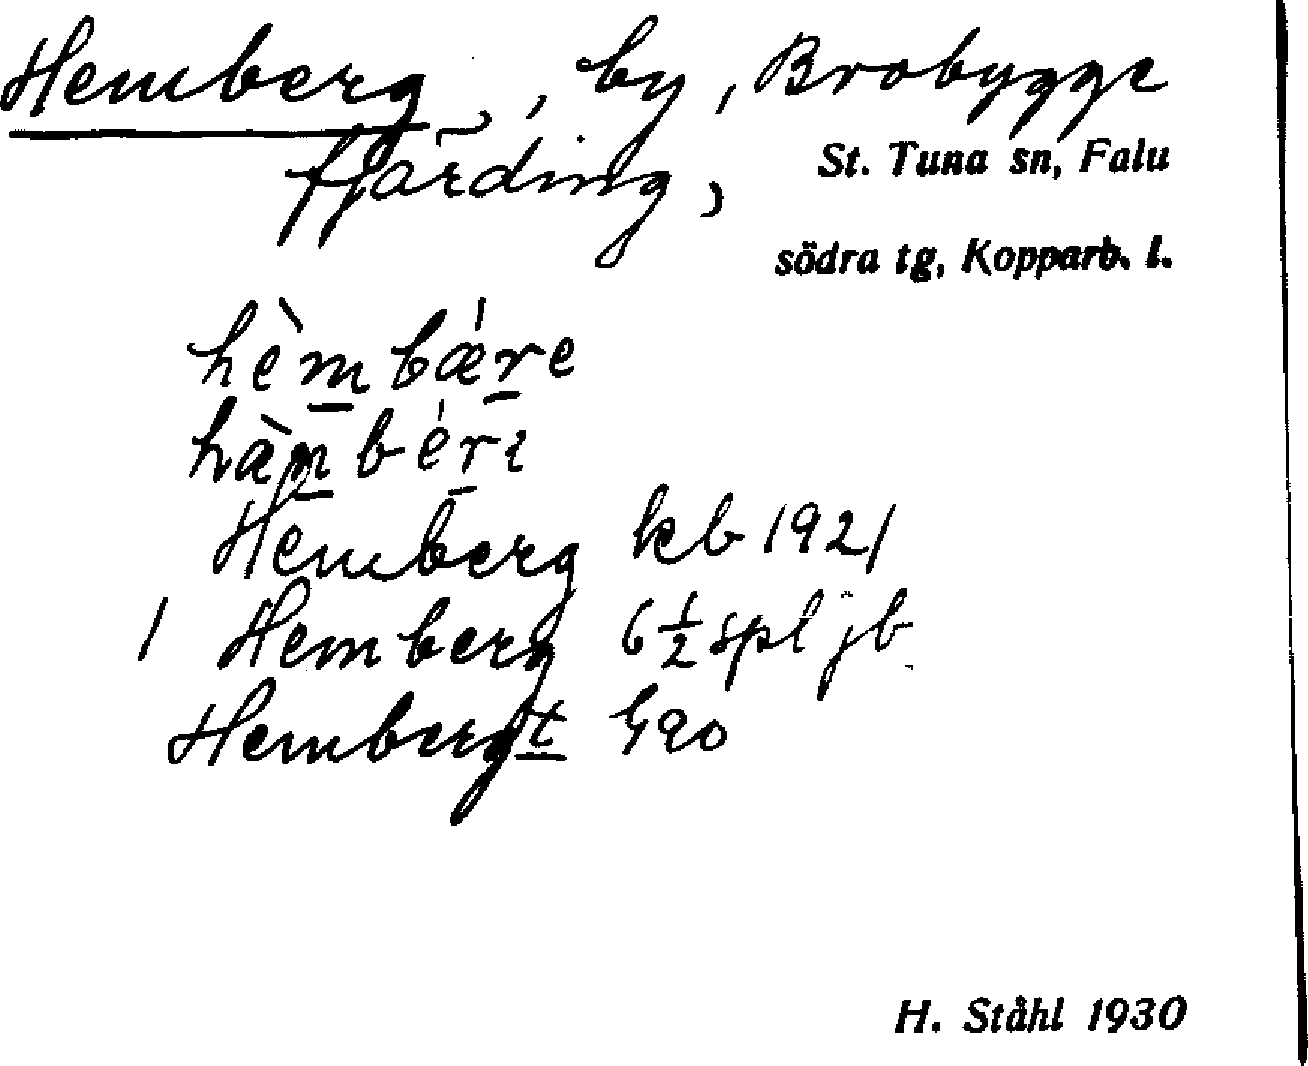 Hemberg, by, Brobygge
fjärding, St. Tuna sn, Falu
södra tg, Kopparb. l.
hèmbǽre
hàmbéri
Hemberg kb 1921
1 Hemberg 6 1/2 spl jb
Hembergt
H. Ståhl 1930